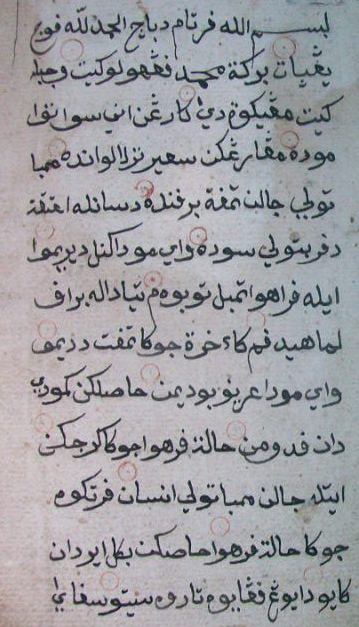 بسم الله فرتام دباج الحمد لله فوج
بركة محمد فڠهولو كيت
كيت اني سواتوا
مودة مڠارڠكن سعير ترلالوانده ممبا
تولي جالن تمفة برفنده دسانله اعتقة
دفربتولي سوده واي مودا كنل ديريموا
ايله فراهوا تمبل توبوهم تياداله براف
لما هيدفم كاءخرة جوكا تمفت دديمو
واي مودا عريفو بوديمن حاصلكن كمودي
دان فدومن حالة فرهوا جوكا كرجكن
ايتله جالن ممباتولي انسان فرتكوه
جوكا حالة فرهوا حاصلكن بكل اير دان
كايو دايوڠ فڠايوه تاروه سيتو سفاي